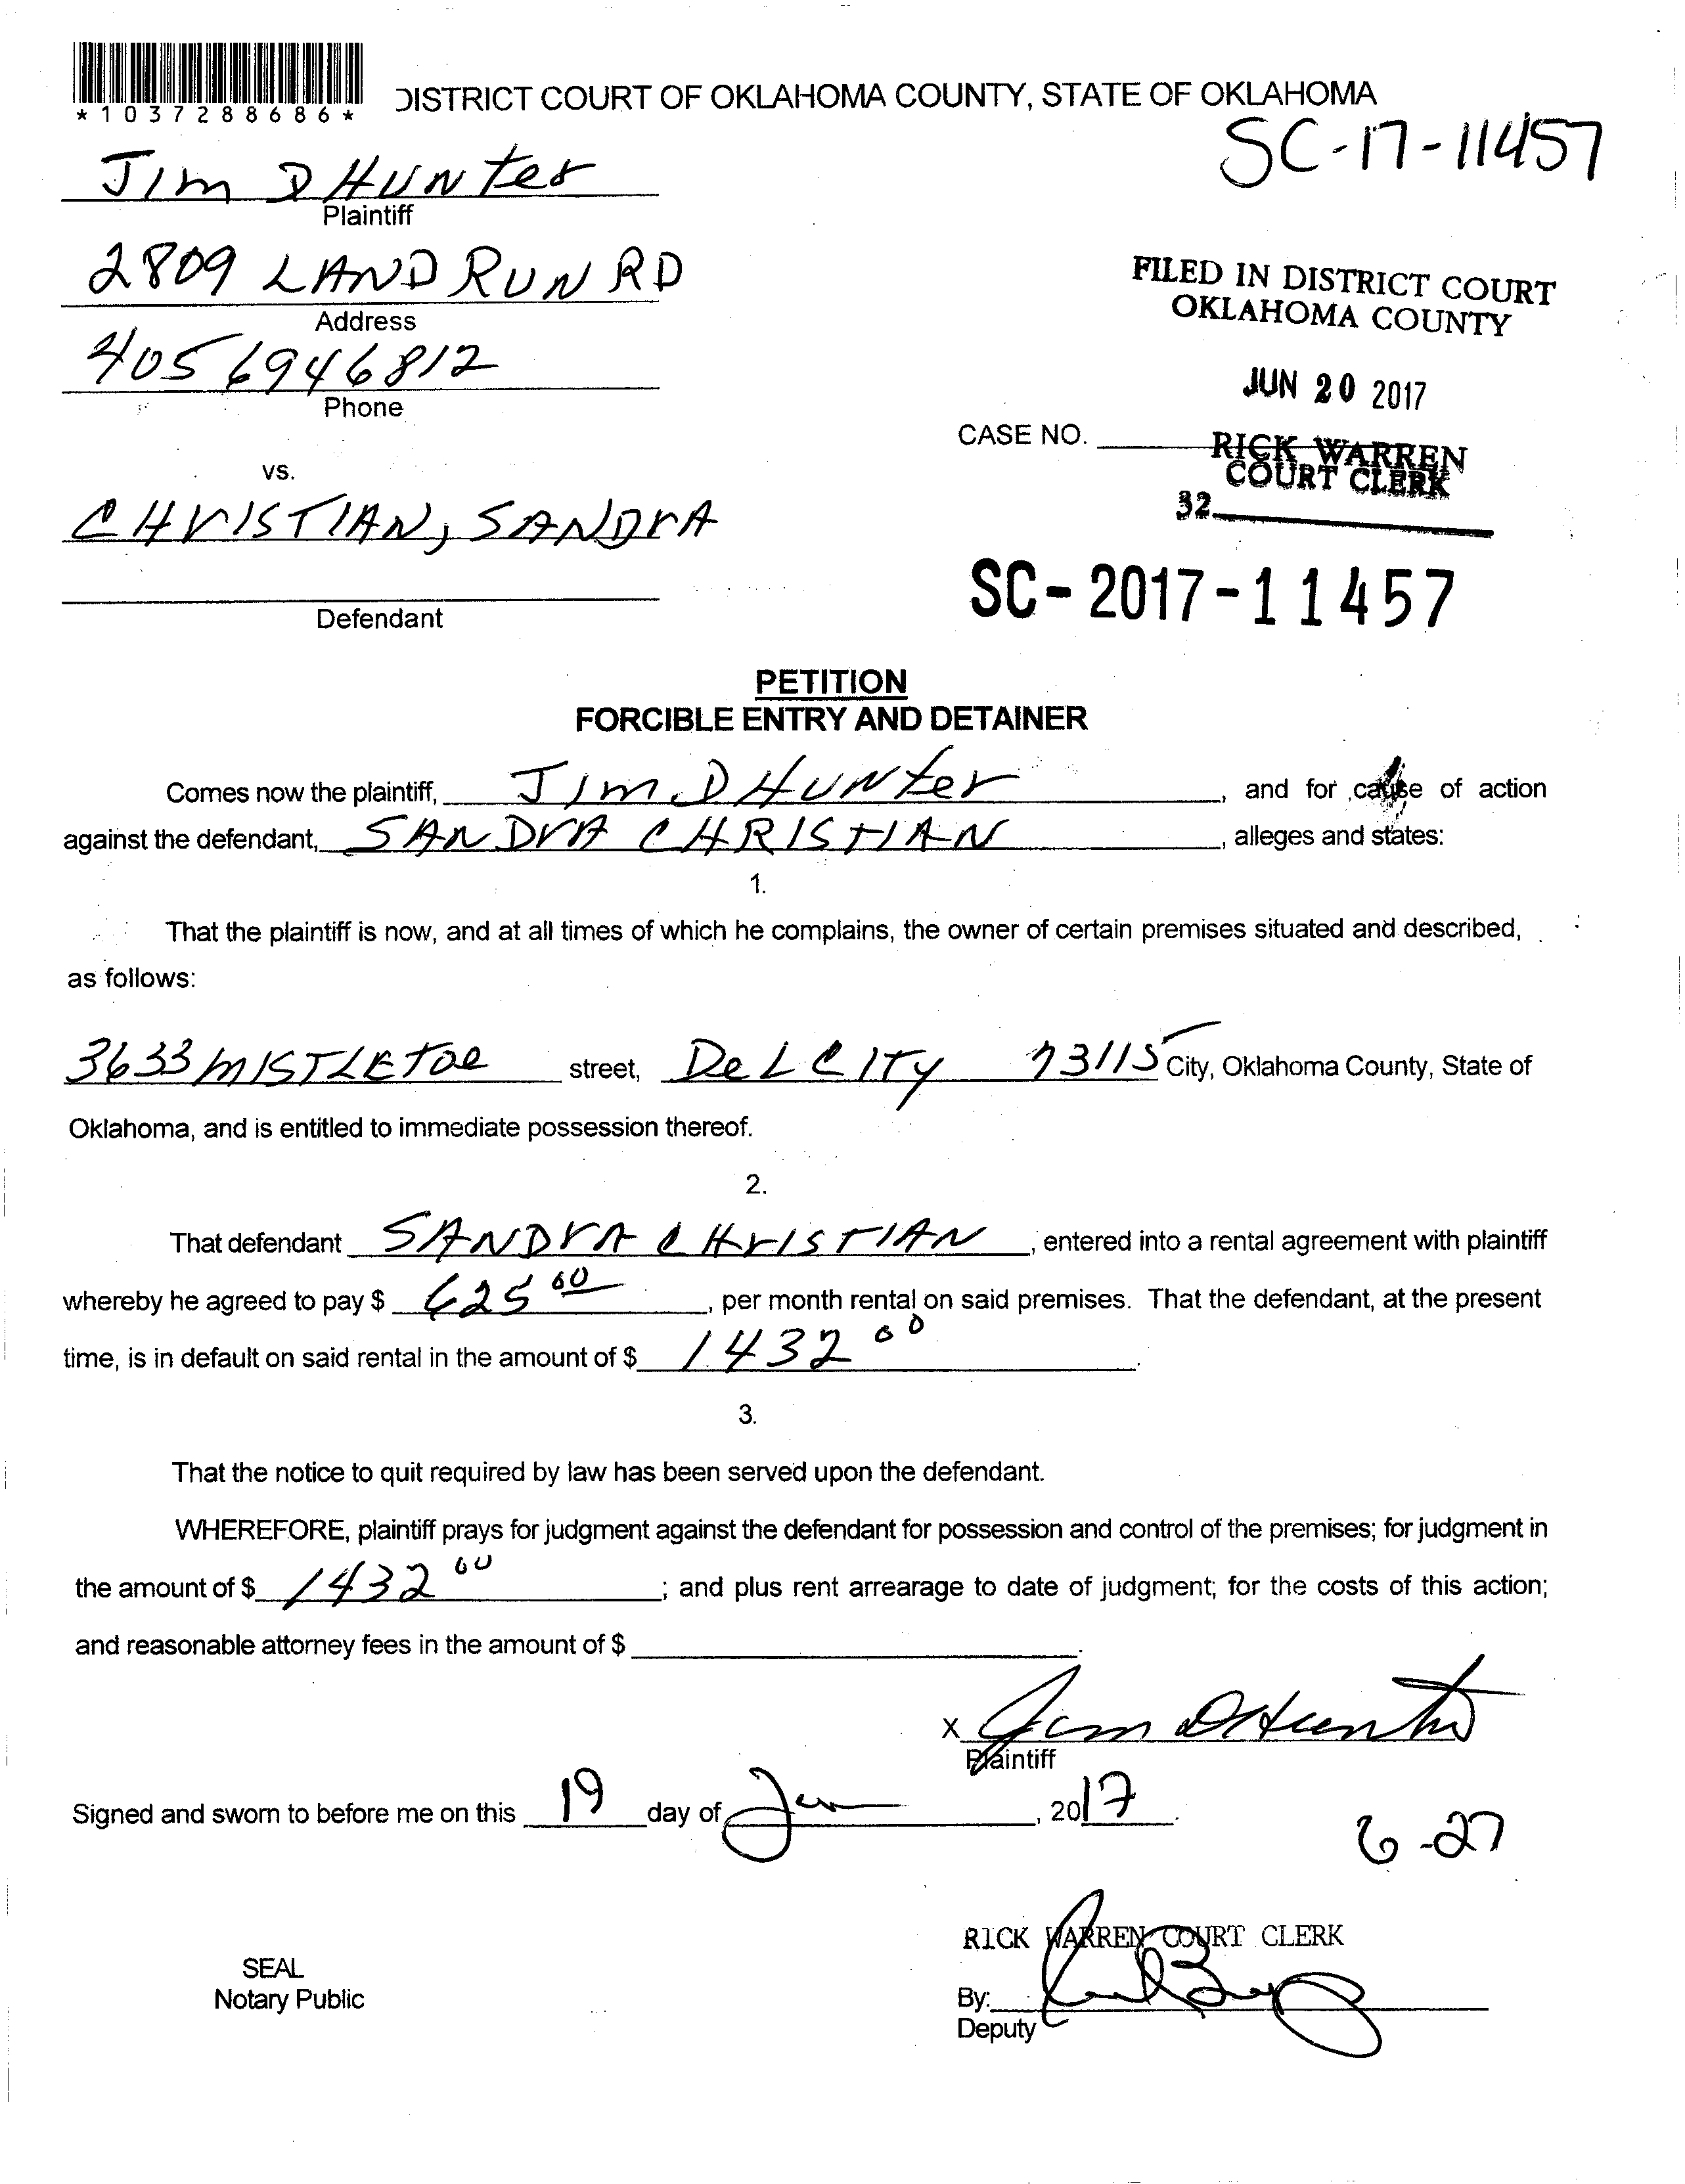 *1037288686*
DISTRICT COURT OF OKLAHOMA COUNTY, STATE OF OKLAHOMA
SC-17-11457
Jim D Hunter
Plaintiff
2809 LAND RUN RD
Address
405 694 6812
Phone
FILED IN DISTRICT COURT
OKLAHOMA COUNTY
JUN 20 2017
CASE NO.
RICK WARREN
COURT CLERK
32
vs.
CHrISTIAN, SANDrA
Defendant
SC-2017-11457
PETITION
FORCIBLE ENTRY AND DETAINER
Comes now the plaintiff, Jim D Hunter, and for cause of action
against the defendant, SANDrA CHRISTIAN, alleges and states:
1.
That the plaintiff is now, and at all times of which he complains, the owner of certain premises situated and described,
as follows:
3633 MISTLEToe street, DeL CITy 73115 City, Oklahoma County, State of
Oklahoma, and is entitled to immediate possession thereof.
2.
That defendant SANDrA CHrISTIAN, entered into a rental agreement with plaintiff
whereby he agreed to pay $ 625 00, per month rental on said premises. That the defendant, at the present
time, is in default on said rental in the amount of $ 1432 00.
3.
That the notice to quit required by law has been served upon the defendant.
WHEREFORE, plaintiff prays for judgment against the defendant for possession and control of the premises; for judgment in
the amount of $ 1432 00; and plus rent arrearage to date of judgment; for the costs of this action;
and reasonable attorney fees in the amount of $
x Jim D Hunter
Plaintiff
Signed and sworn to before me on this 19 day of Jun, 2017.
6-27
RICK WARREN COURT CLERK
SEAL
Notary Public
By:
Deputy